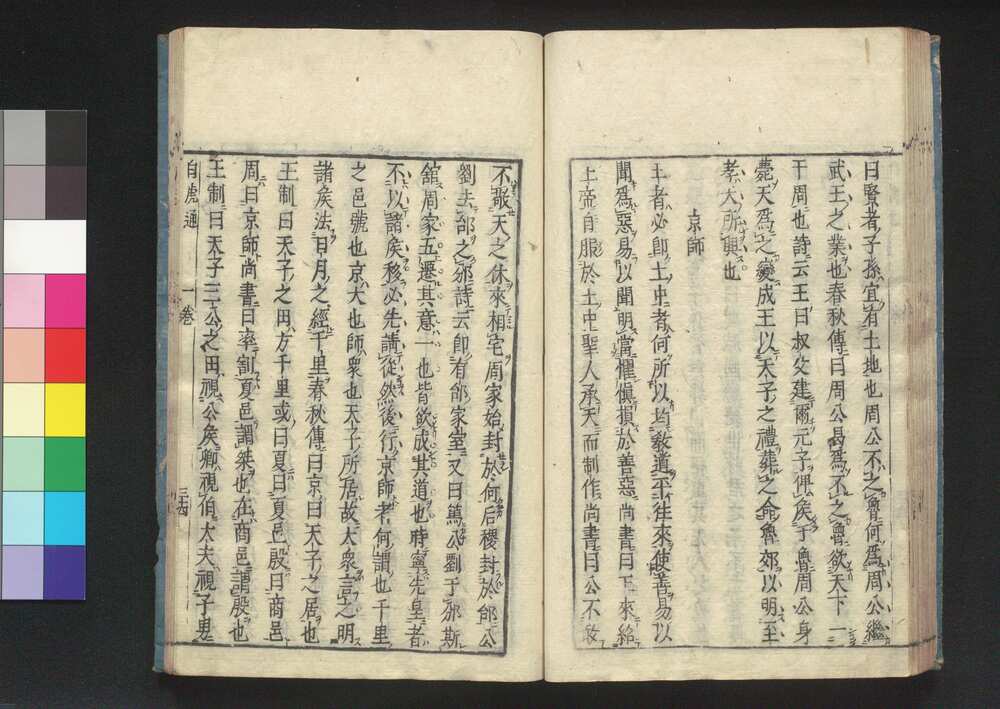 曰賢者子孫宜有土地也周公不之魯何爲周公繼
武王之業也春秋傳曰周公曷爲不之魯欲天下一
于周也詩云王曰叔父建爾元子俾侯于魯周公身
薨天爲之變成王以天子之禮葬之命魯郊以明至
孝天所興也
京師
王者必即土中者何所以均敎道平往來使善易以
聞爲惡易以聞明當懼愼損於善惡尚書曰下來給
上帝自服於土中聖人承天而制作尚書曰公不敢
不敬天之休來相宅周家始封於何后稷封於邰公
劉去邰之邠詩云即有邰家室又曰篤公劉于邠斯
舘周家五遷其意一也皆欲成其道也時寧先皇者
不以諸侯移必先請從然後行京師者何謂也千里
之邑號也京大也師衆也天子所居故大衆言之明
諸侯法日月之經千里春秋傳曰京曰天子之居也
王制曰天子之田方千里或曰夏曰夏邑殷曰商邑
周曰京師尚書曰率割夏邑謂桀也在商邑謂殷也
王制曰天子三公之田視公侯卿視伯大夫視子男
白虎通 一卷 三十四